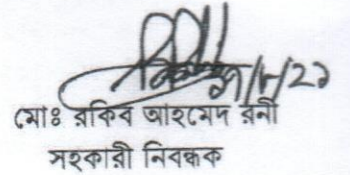 মোঃ রকিব আহমেদ রনী
সহকারী নিবন্ধক